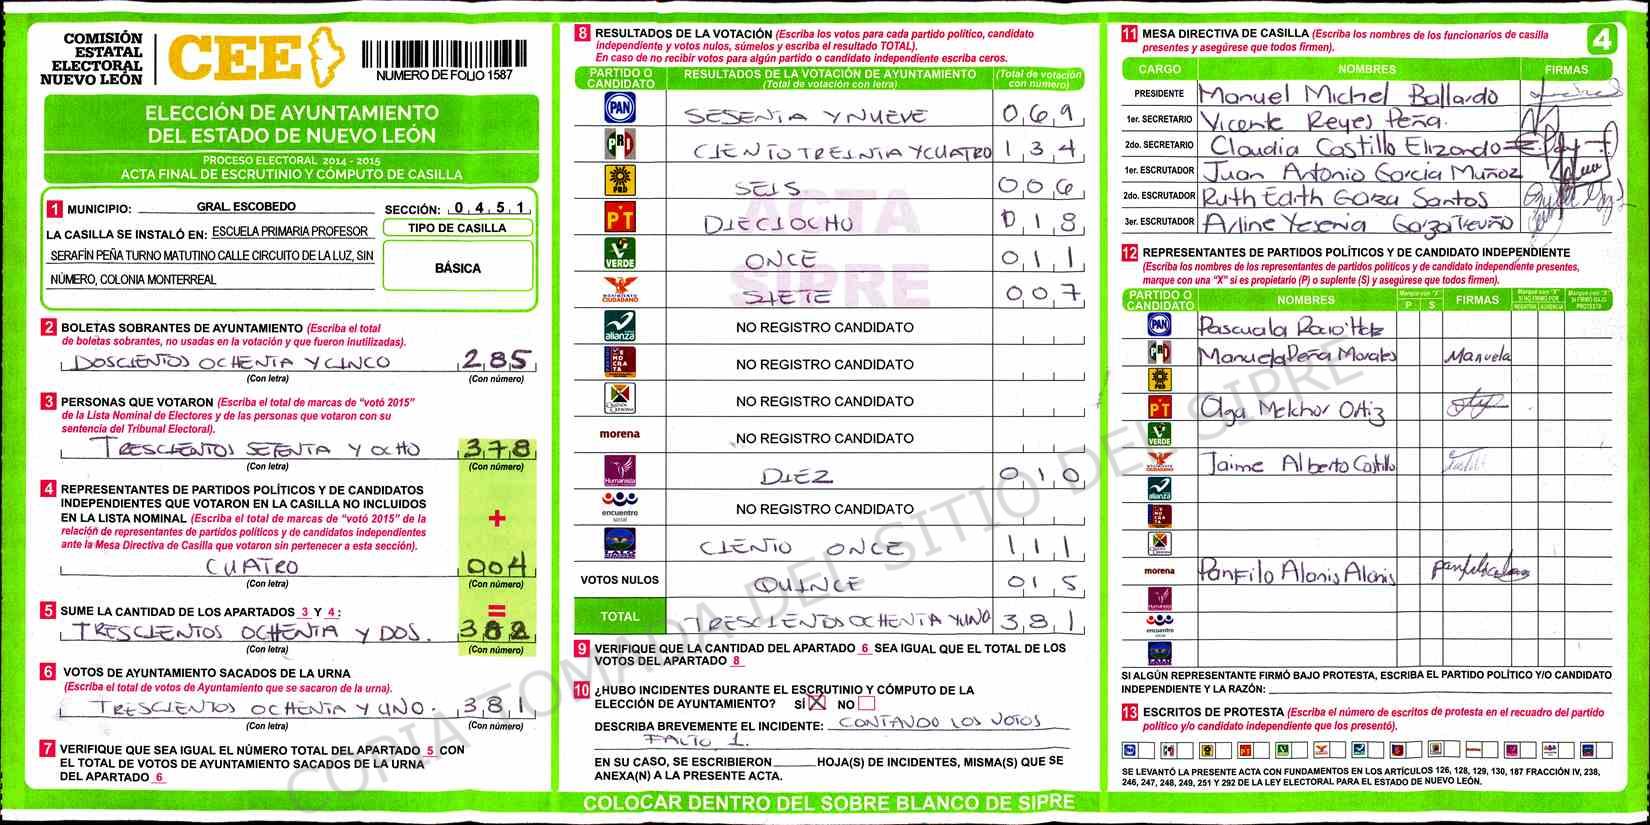 COMISIÓN
ESTATAL
ELECTORAL
NUEVO LEÓN
CEE
NUMERO DE FOLIO 1587
ELECCIÓN DE AYUNTAMIENTO
DEL ESTADO DE NUEVO LEÓN
PROCESO ELECTORAL 2014 - 2015
ACTA FINAL DE ESCRUTINIO Y CÓMPUTO DE CASILLA
1 MUNICIPIO: GRAL. ESCOBEDO SECCIÓN: 0 4 5 1
LA CASILLA SE INSTALÓ EN: ESCUELA PRIMARIA PROFESOR
SERAFÍN PEÑA TURNO MATUTINO CALLE CIRCUITO DE LA LUZ, SIN
NÚMERO, COLONIA MONTERREAL
TIPO DE CASILLA
BÁSICA
2 BOLETAS SOBRANTES DE AYUNTAMIENTO (Escriba el total
de boletas sobrantes, no usadas en la votación y que fueron inutilizadas).
DOSCIENTOS OCHENTA Y CINCO 285
(Con letra) (Con número)
3 PERSONAS QUE VOTARON (Escriba el total de marcas de "votó 2015"
de la Lista Nominal de Electores y de las personas que votaron con su
sentencia del Tribunal Electoral).
TRESCIENTOS SETENTA Y OCHO 378
(Con letra) (Con número)
4 REPRESENTANTES DE PARTIDOS POLÍTICOS Y DE CANDIDATOS
INDEPENDIENTES QUE VOTARON EN LA CASILLA NO INCLUIDOS
EN LA LISTA NOMINAL (Escriba el total de marcas de "votó 2015" de la
relación de representantes de partidos políticos y de candidatos independientes
ante la Mesa Directiva de Casilla que votaron sin pertenecer a esta sección).
+
CUATRO 004
(Con letra) (Con número)
5 SUME LA CANTIDAD DE LOS APARTADOS 3 Y 4: =
TRESCIENTOS OCHENTA Y DOS. 382
(Con letra) (Con número)
6 VOTOS DE AYUNTAMIENTO SACADOS DE LA URNA
(Escriba el total de votos de Ayuntamiento que se sacaron de la urna).
TRESCIENTOS OCHENTA Y UNO. 381
(Con letra) (Con número)
7 VERIFIQUE QUE SEA IGUAL EL NÚMERO TOTAL DEL APARTADO 5 CON
EL TOTAL DE VOTOS DE AYUNTAMIENTO SACADOS DE LA URNA
DEL APARTADO 6
8 RESULTADOS DE LA VOTACIÓN (Escriba los votos para cada partido político, candidato
independiente y votos nulos, súmelos y escriba el resultado TOTAL).
En caso de no recibir votos para algún partido o candidato independiente escriba ceros.
PARTIDO O CANDIDATO RESULTADOS DE LA VOTACIÓN DE AYUNTAMIENTO (Total de votación con letra) (Total de votación con número)
PAN SESENTA Y NUEVE 069
PRD CIENTO TREINTA Y CUATRO 134
PRD SEIS 006
PT DIECIOCHO 018
VERDE ONCE 011
MOVIMIENTO CIUDADANO SIETE 007
alianza NO REGISTRO CANDIDATO
DEMOCRATA NO REGISTRO CANDIDATO
CRUZADA CIUDADANA NO REGISTRO CANDIDATO
morena NO REGISTRO CANDIDATO
Humanista DIEZ 010
encuentro social NO REGISTRO CANDIDATO
CIENTO ONCE 111
VOTOS NULOS QUINCE 015
TOTAL TRESCIENTOS OCHENTA Y UNO 381
ACTA
SIPRE
9 VERIFIQUE QUE LA CANTIDAD DEL APARTADO 6 SEA IGUAL QUE EL TOTAL DE LOS
VOTOS DEL APARTADO 8
10 ¿HUBO INCIDENTES DURANTE EL ESCRUTINIO Y CÓMPUTO DE LA
ELECCIÓN DE AYUNTAMIENTO? SÍ X NO
DESCRIBA BREVEMENTE EL INCIDENTE: CONTANDO LOS VOTOS
FALTO 1.
EN SU CASO, SE ESCRIBIERON HOJA(S) DE INCIDENTES, MISMA(S) QUE SE
ANEXA(N) A LA PRESENTE ACTA.
COLOCAR DENTRO DEL SOBRE BLANCO DE SIPRE
11 MESA DIRECTIVA DE CASILLA (Escriba los nombres de los funcionarios de casilla
presentes y asegúrese que todos firmen).
4
CARGO NOMBRES FIRMAS
PRESIDENTE Manuel Michel Ballardo
1er. SECRETARIO Vicente Reyes Peña.
2do. SECRETARIO Claudia Castillo Elizondo
1er. ESCRUTADOR Juan Antonio Garcia Muñoz
2do. ESCRUTADOR Ruth Edith Garza Santos
3er. ESCRUTADOR Arline Yesenia Garza Treviño
12 REPRESENTANTES DE PARTIDOS POLÍTICOS Y DE CANDIDATO INDEPENDIENTE
(Escriba los nombres de los representantes de partidos políticos y de candidato independiente presentes,
marque con una "X" si es propietario (P) o suplente (S) y asegúrese que todos firmen).
PARTIDO O CANDIDATO NOMBRES Marque con "X" P S FIRMAS Marque con "X" SI NO FIRMÓ POR NEGATIVA AUSENCIA Marque con "X" SI FIRMÓ BAJO PROTESTA
PAN Pascuala Rocio
PRD Manuela Peña Morales Manuela
PRD
PT Olga Melchor Ortiz
VERDE
Jaime Alberto Castillo
alianza
morena Panfilo Alanis Alanis
Humanista
encuentro social
SI ALGÚN REPRESENTANTE FIRMÓ BAJO PROTESTA, ESCRIBA EL PARTIDO POLÍTICO Y/O CANDIDATO
INDEPENDIENTE Y LA RAZÓN:
13 ESCRITOS DE PROTESTA (Escriba el número de escritos de protesta en el recuadro del partido
político y/o candidato independiente que los presentó).
SE LEVANTÓ LA PRESENTE ACTA CON FUNDAMENTOS EN LOS ARTÍCULOS 126, 128, 129, 130, 187 FRACCIÓN IV, 238,
246, 247, 248, 249, 251 Y 292 DE LA LEY ELECTORAL PARA EL ESTADO DE NUEVO LEÓN.
COPIA TOMADA DEL SITIO DEL SIPRE